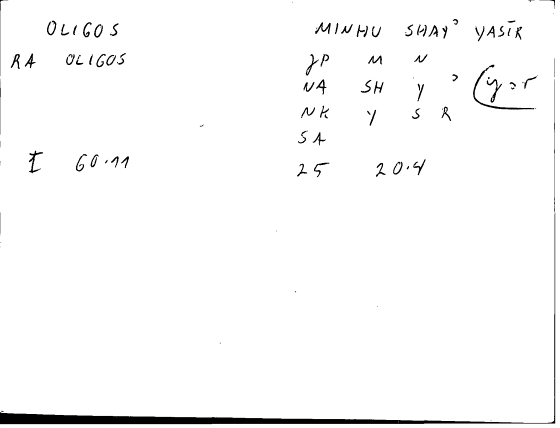 OLIGOS MINHU SHAYʾ YASĪR
RA OLIGOS JP M N
NA SH Y ʾ (y=r
NK Y S R
SA
I 60.11 25 20.4